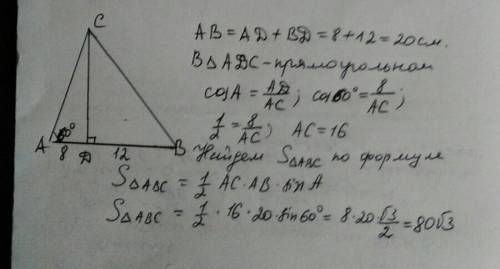 C
60°
A 8 D 12 B
AB = AD + BD = 8 + 12 = 20 см.
В ΔADC - прямоугольном
cosA = AD/AC; cos60° = 8/AC;
1/2 = 8/AC; AC = 16
Найдем SΔABC по формуле
SΔABC = 1/2 AC · AB · sin A
SΔABC = 1/2 · 16 · 20 · sin 60° = 8 · 20 · √3/2 = 80√3